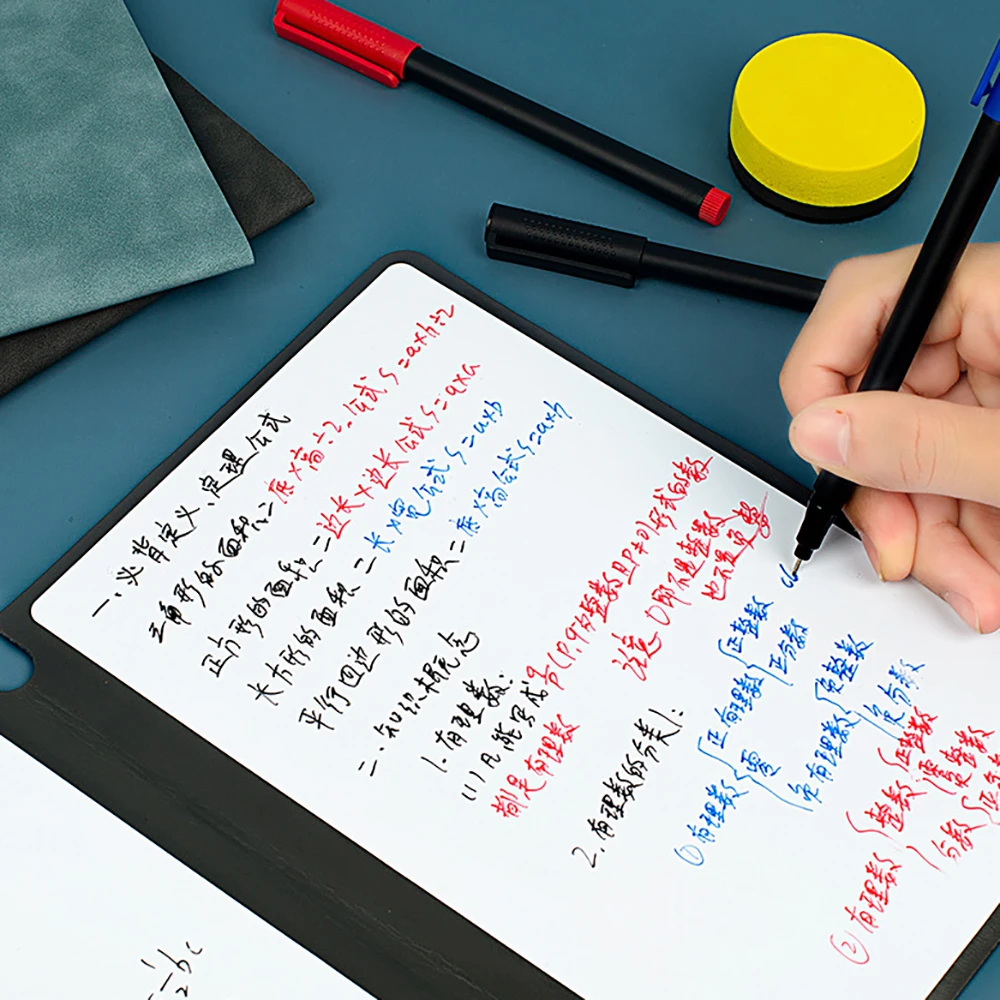 一、必背定义、定理公式
三角形的面积=底×高÷2。公式S=a×h÷2
正方形的面积=边长×边长公式S=a×a
长方形的面积=长×宽公式S=a×b
平行四边形的面积=底×高公式S=a×h
二、知识概念
1.有理数:
(1)凡能写成q/p(P,q为整数且P≠0)形式的数
都是有理数
注意①即不是整数
也不是
2.有理数的分类1:
①有理数{正有理数{正整数
正分数
零
负有理数{负整数
负分数
②有理数{整数{正整数
零
负整数
分数{正分
-1/2bc